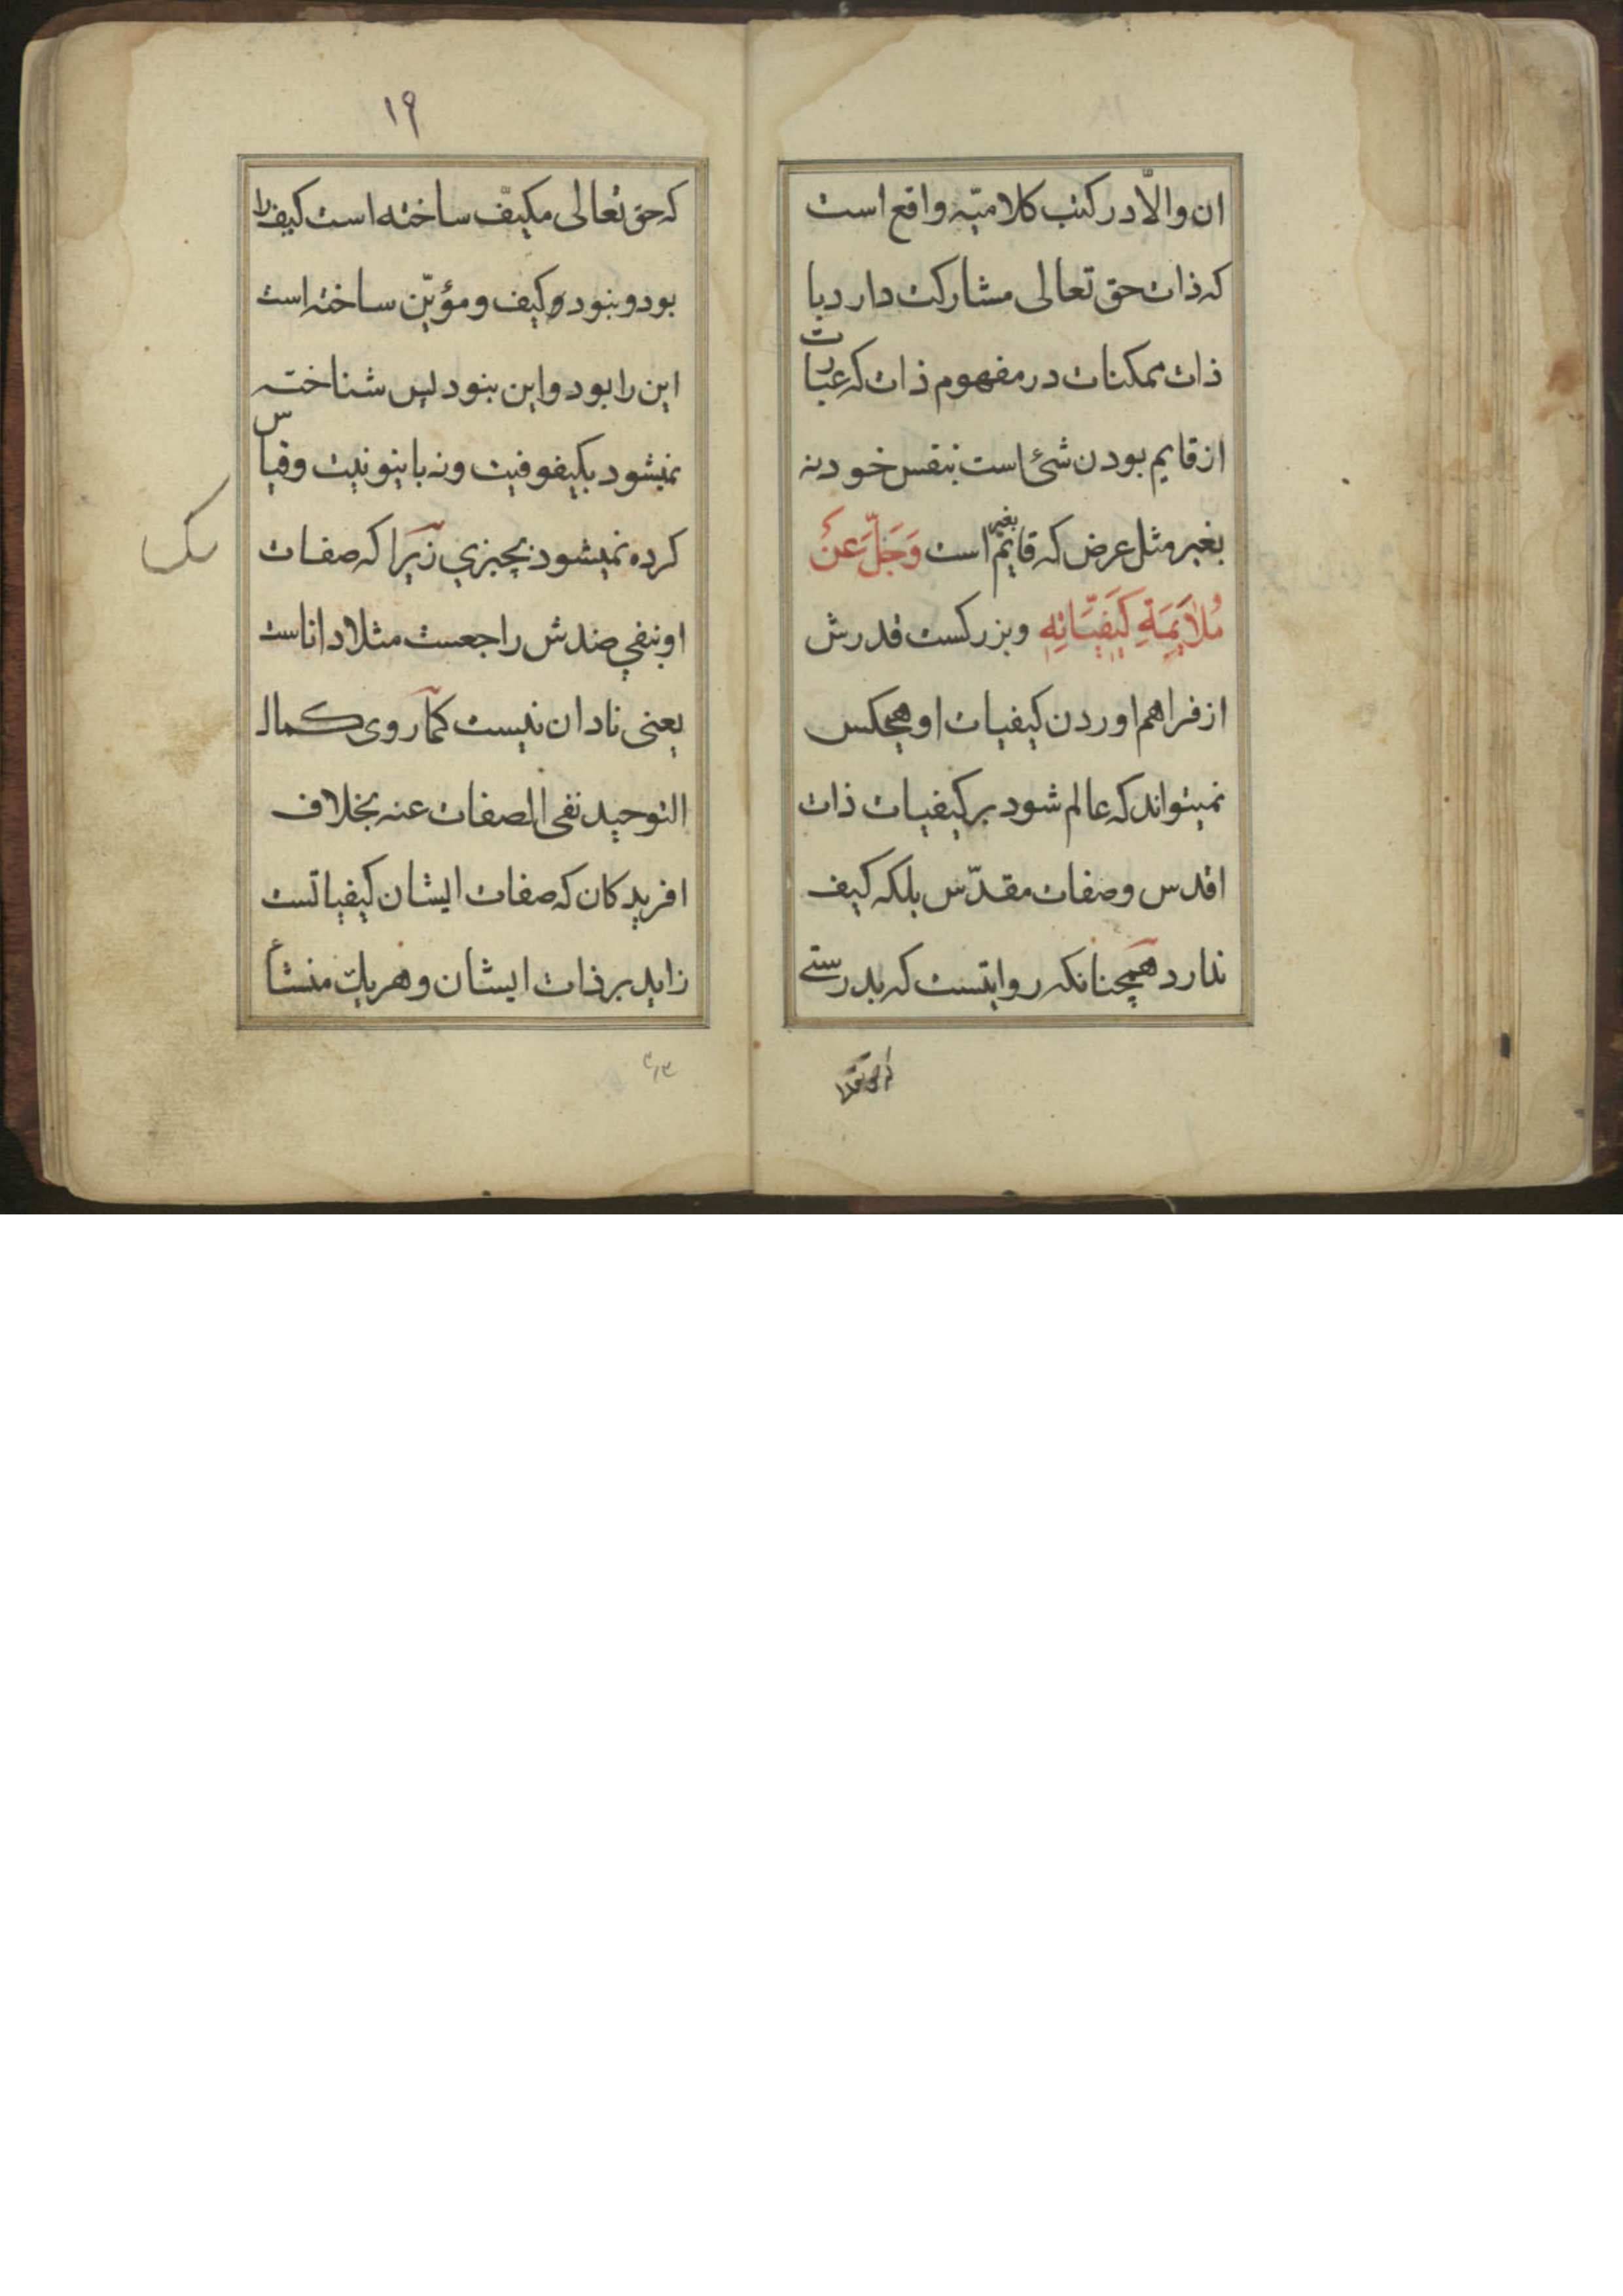 ان والّا در کتب کلامیّه واقع است
که ذات حق تعالی مشارکت دارد با
ذات ممکنات در مفهوم ذات که عبارت
از قایم بودن شئ است بنفس خود نه
بغیر مثل عرض که قایم بغیر است وَجَلَّ عَنْ
مُلاَیَمَةِ کَیْفِیَّاتِهِ وبزرکست قدرش
از فراهم اوردن کیفیات او هیچکس
نمیتواند که عالم شود بر کیفیات ذات
اقدس وصفات مقدّس بلکه کیف
ندارد همچنانکه روایتست که بدرستے
۱۹
که حق تعالی مکیّف ساخته است کیف را
بود و نبود و کیف و مؤیّن ساخته است
این را بود و این نبود پس شناخته
نمیشود بکیفوفیت ونه باینونیت وقیاس
کرده نمیشود بچیزي زیرا که صفات
او بنفي ضدش راجعست مثلا داناست
یعنی نادان نیست کما روی کمال
التوحید نفی الصفات عنه بخلاف
افریدکان که صفات ایشان کیفیاتست
زاید بر ذات ایشان و هر یک منشأ